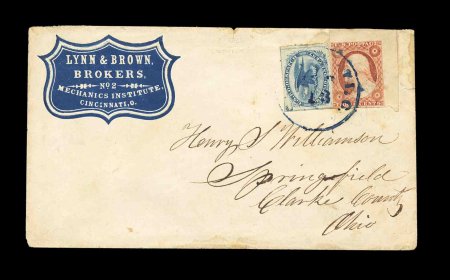 LYNN & BROWN,
BROKERS,
No 2
MECHANICS INSTITUTE,
CINCINNATI, O.
Henry S Williamson
Springfield
Clarke County
Ohio